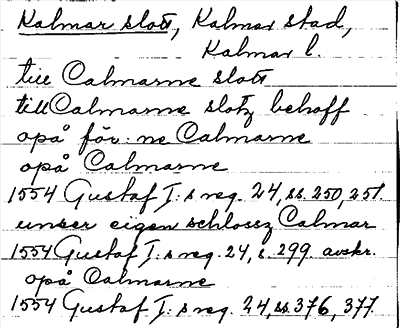 Kalmar slott, Kalmar stad,
Kalmar l.
till Calmarne slott
till Calmarne slotz behoff
opå för:ne Calmarne
opå Calmarne
1554 Gustaf I:s reg. 24, ss. 250, 251.
unser eigen schlossz Calmar
1554 Gustaf I:s reg. 24, s. 299. avskr.
opå Calmarne
1554 Gustaf I:s reg. 24, ss. 376, 377.